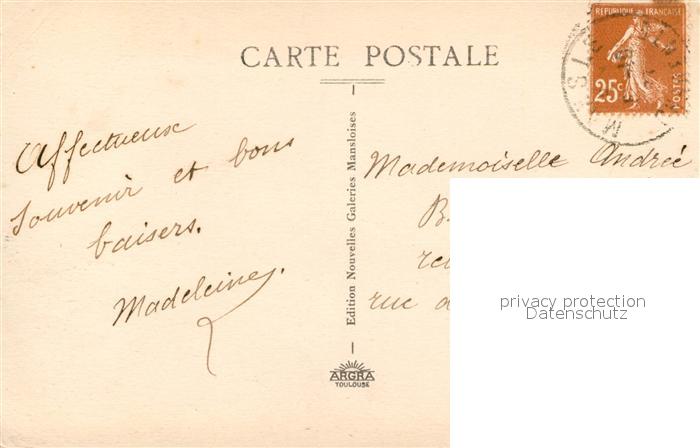 CARTE POSTALE
REPUBLIQUE FRANÇAISE
25c
POSTES
Affectueux
souvenir et bons
baisers.
Madeleine.
Edition Nouvelles Galeries Mansloises
ARGRA
TOULOUSE
Mademoiselle Andrée
B.
rue
privacy protection
Datenschutz